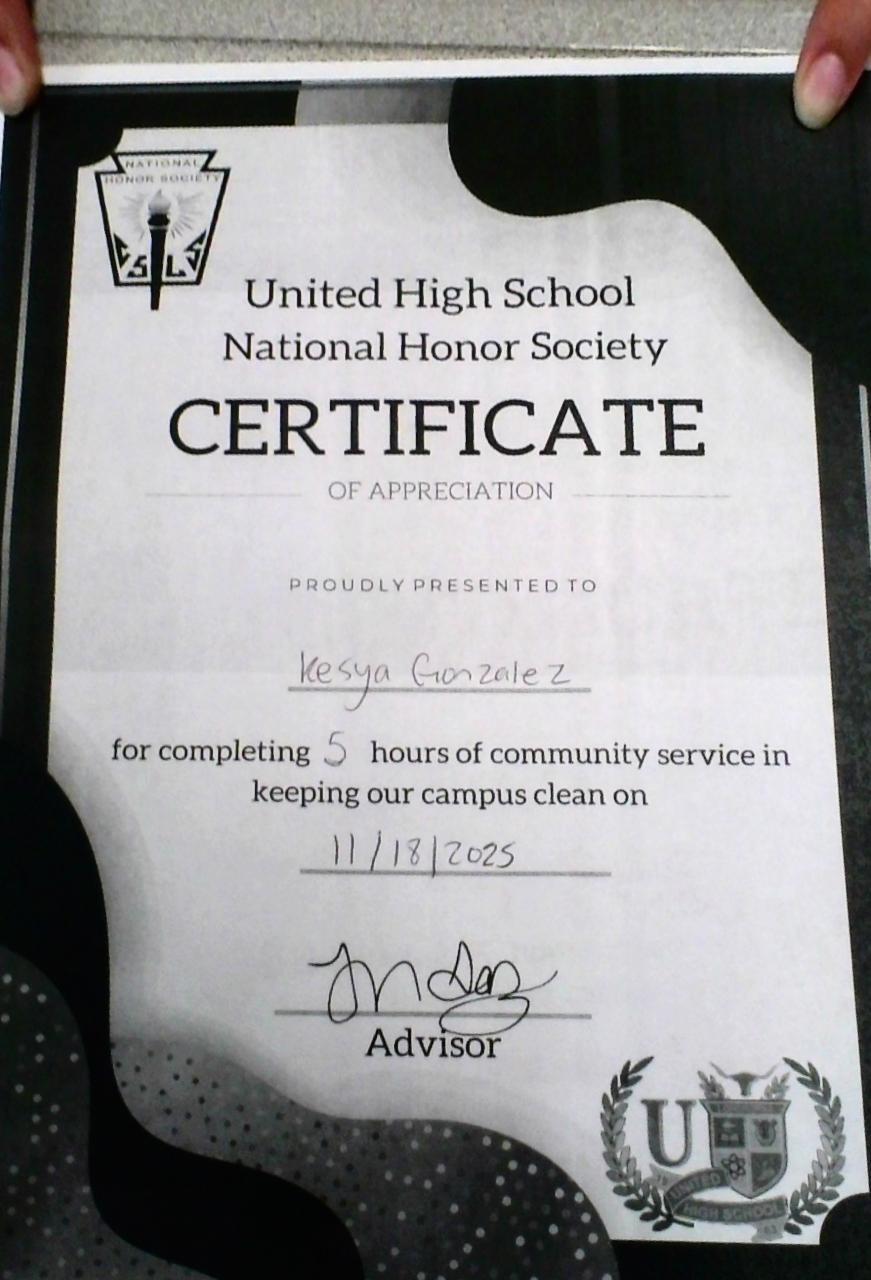 NATIONAL
HONOR SOCIETY
S L S
United High School
National Honor Society
CERTIFICATE
OF APPRECIATION
PROUDLY PRESENTED TO
Kesya Gonzalez
for completing 5 hours of community service in
keeping our campus clean on
11/18/2025
Advisor
U
UNITED
HIGH SCHOOL